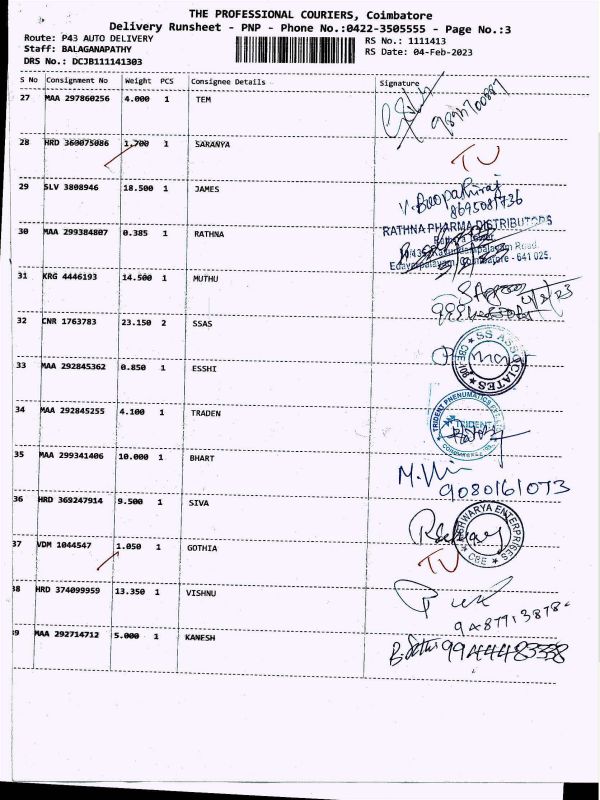 THE PROFESSIONAL COURIERS, Coimbatore
Delivery Runsheet - PNP - Phone No.:0422-3505555 - Page No.:3
Route: P43 AUTO DELIVERY RS No.: 1111413
Staff: BALAGANAPATHY RS Date: 04-Feb-2023
DRS No.: DCJB111141303
S No Consignment No Weight PCS Consignee Details Signature
27 MAA 297860256 4.000 1 TEM
28 HRD 360075086 1.700 1 SARANYA TU
29 SLV 3808946 18.500 1 JAMES V. Boopathiraj
8695081736
30 MAA 299384807 0.385 1 RATHNA RATHNA PHARMA DISTRIBUTORS
Edayarpalayam, Coimbatore - 641 025.
31 KRG 4446193 14.500 1 MUTHU
4/2/23
32 CNR 1763783 23.150 2 SSAS SS ASSOCIATES
33 MAA 292845362 0.850 1 ESSHI
34 MAA 292845255 4.100 1 TRADEN TRIDENT PNEUMATICS
TRIDENT
35 MAA 299341406 10.000 1 BHART
9080161073
36 HRD 369247914 9.500 1 SIVA ENTERPRISES
CBE
37 VDM 1044547 1.050 1 GOTHIA TU
38 HRD 374099959 13.350 1 VISHNU
39 MAA 292714712 5.000 1 KANESH